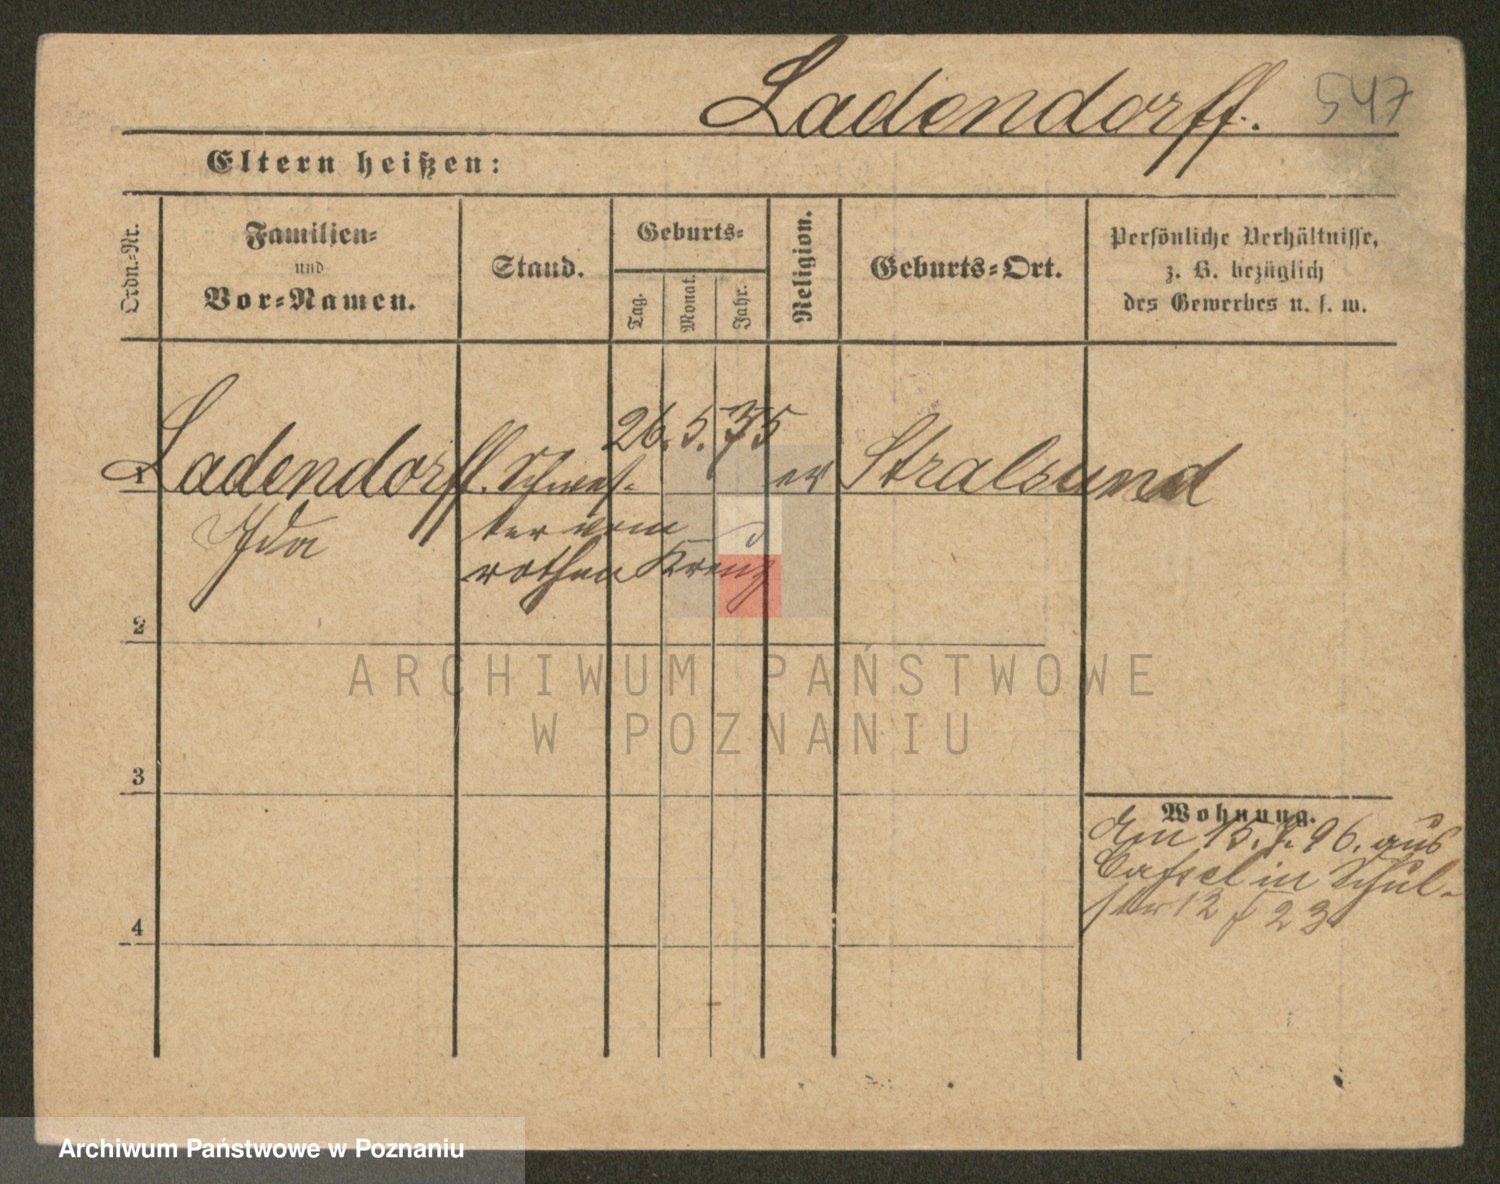 Ladendorff.
547
Eltern heißen:
Ordn.-Nr.
Familien-
und
Vor-Namen.
Stand.
Geburts-
Tag.
Monat.
Jahr.
Religion.
Geburts-Ort.
Persönliche Verhältnisse,
z. B. bezüglich
des Gewerbes u. s. w.
1
Ladendorff.
Ida
Schwes-
ter vom
rothen Kreuz
26. 5. 75
ev
Stralsund
2
3
4
Wohnung.
Am 15. 96. aus
Cassel in Schul-
str 12 23
ARCHIWUM PAŃSTWOWE
W POZNANIU
Archiwum Państwowe w Poznaniu